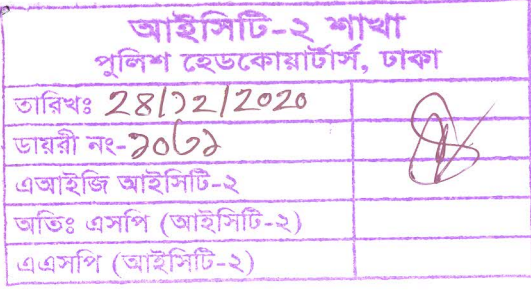 আইসিটি-২ শাখা
পুলিশ হেডকোয়ার্টার্স, ঢাকা
তারিখঃ ২৪/১২/২০২০
ডায়রী নং-১০৬১
এআইজি আইসিটি-২
অতিঃ এসপি (আইসিটি-২)
এএসপি (আইসিটি-২)